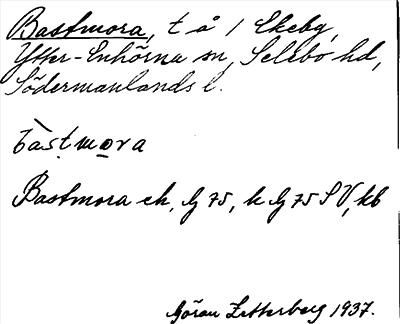 Bastmora, t å 1 Ekeby,
Ytter-Enhörna sn, Selebo hd,
Södermanlands l.
bàstmora
Bastmora ek, G 75, h G 75 SV, kb
Göran Zetterberg 1937.